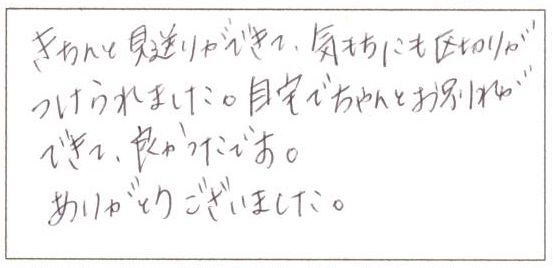 きちんと見送りができて、気もちにも区切りが
つけられました。自宅でちゃんとお別れが
できて、良かったです。
ありがとうございました。